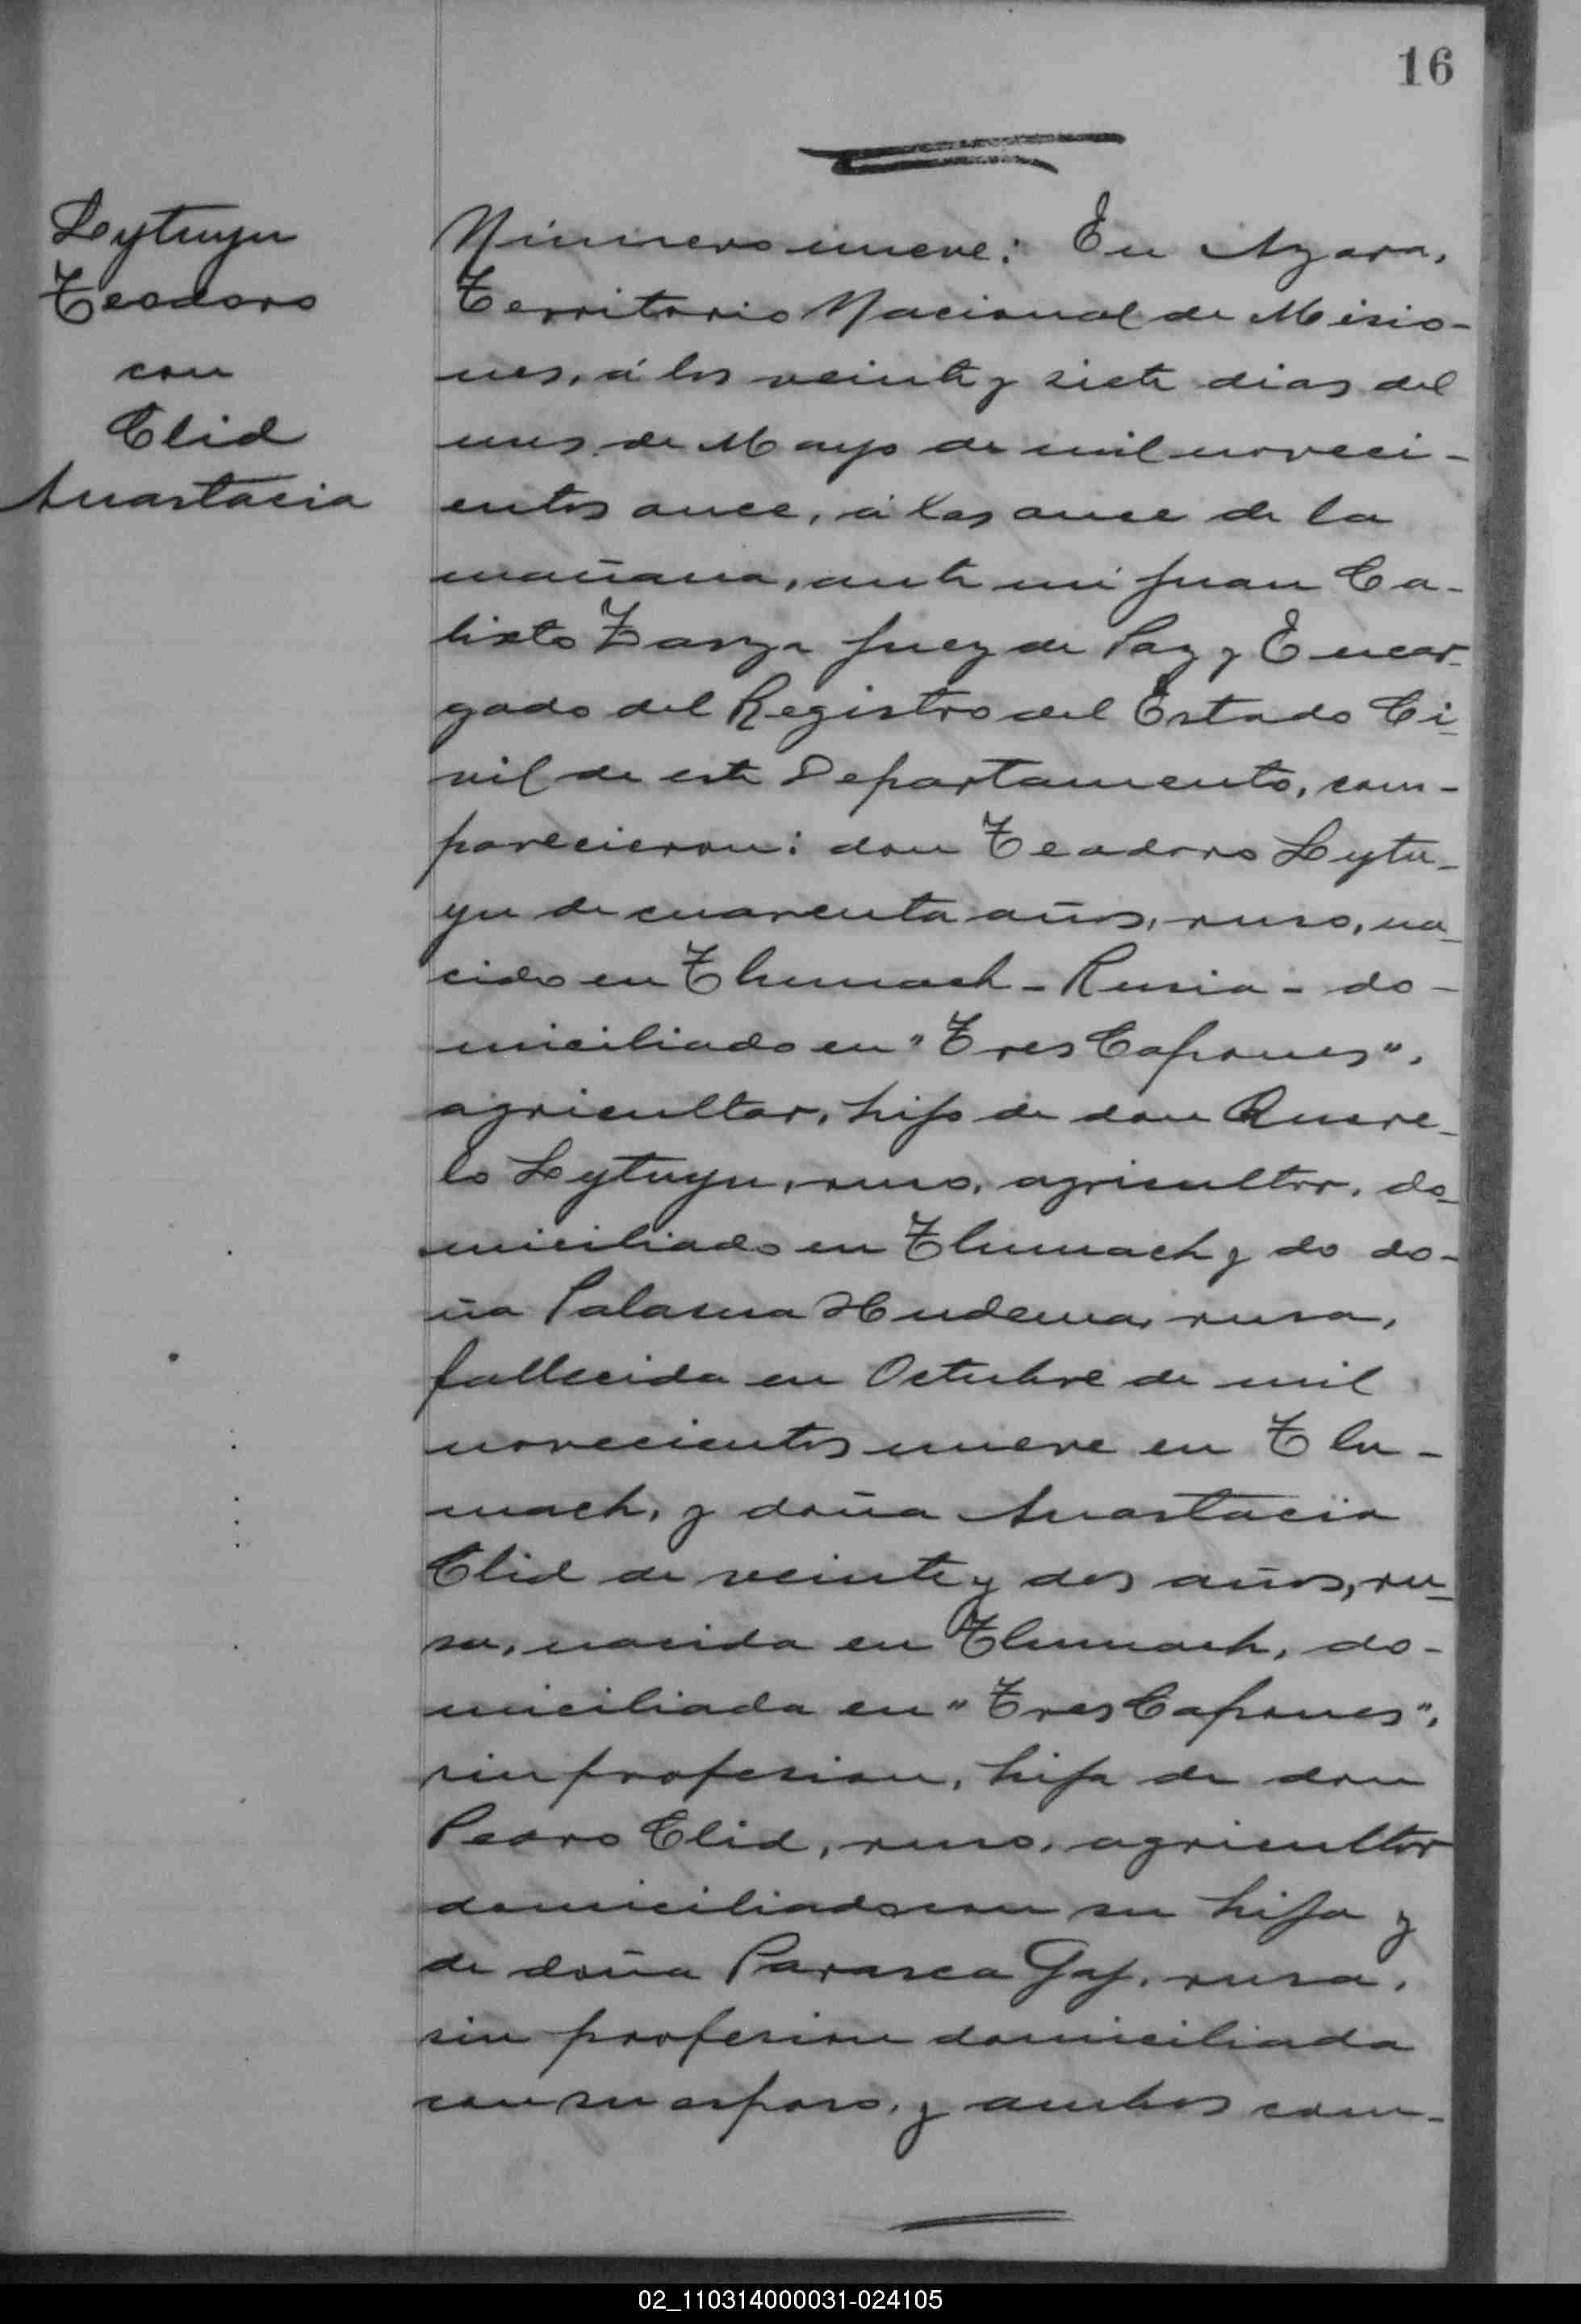 16
Leytuyn
Teodoro
con
Clid
Anastacia
Número nueve: En Azara,
Territorio Nacional de Misio-
nes, á los veinte y siete dias del
mes de Mayo de mil noveci-
entos once, á las once de la
mañana, ante mi Juan Ca-
lixto Zarza Juez de Paz y Encar-
gado del Registro del Estado Ci-
vil de este Departamento, com-
parecieron: don Teodoro Leytu-
yn de cuarenta años, ruso, na-
cido en Tlumach - Rusia - do-
miciliado en "Tres Capones",
agricultor, hijo de don
Leytuyn, ruso, agricultor, do-
miciliado en Tlumach y do do-
ña Palasna Hudema, rusa,
fallecida en Octubre de mil
novecientos nueve en Tlu-
mach, y doña Anastacia
Clid de veinte y dos años, ru-
sa, nacida en Tlumach, do-
miciliada en "Tres Capones",
sin profesion, hija de don
Pedro Clid, ruso, agricultor
domiciliado con su hija y
de doña Parasca Gaj, rusa,
sin profesion domiciliada
con su esposo, y ambos com-
02_110314000031-024105